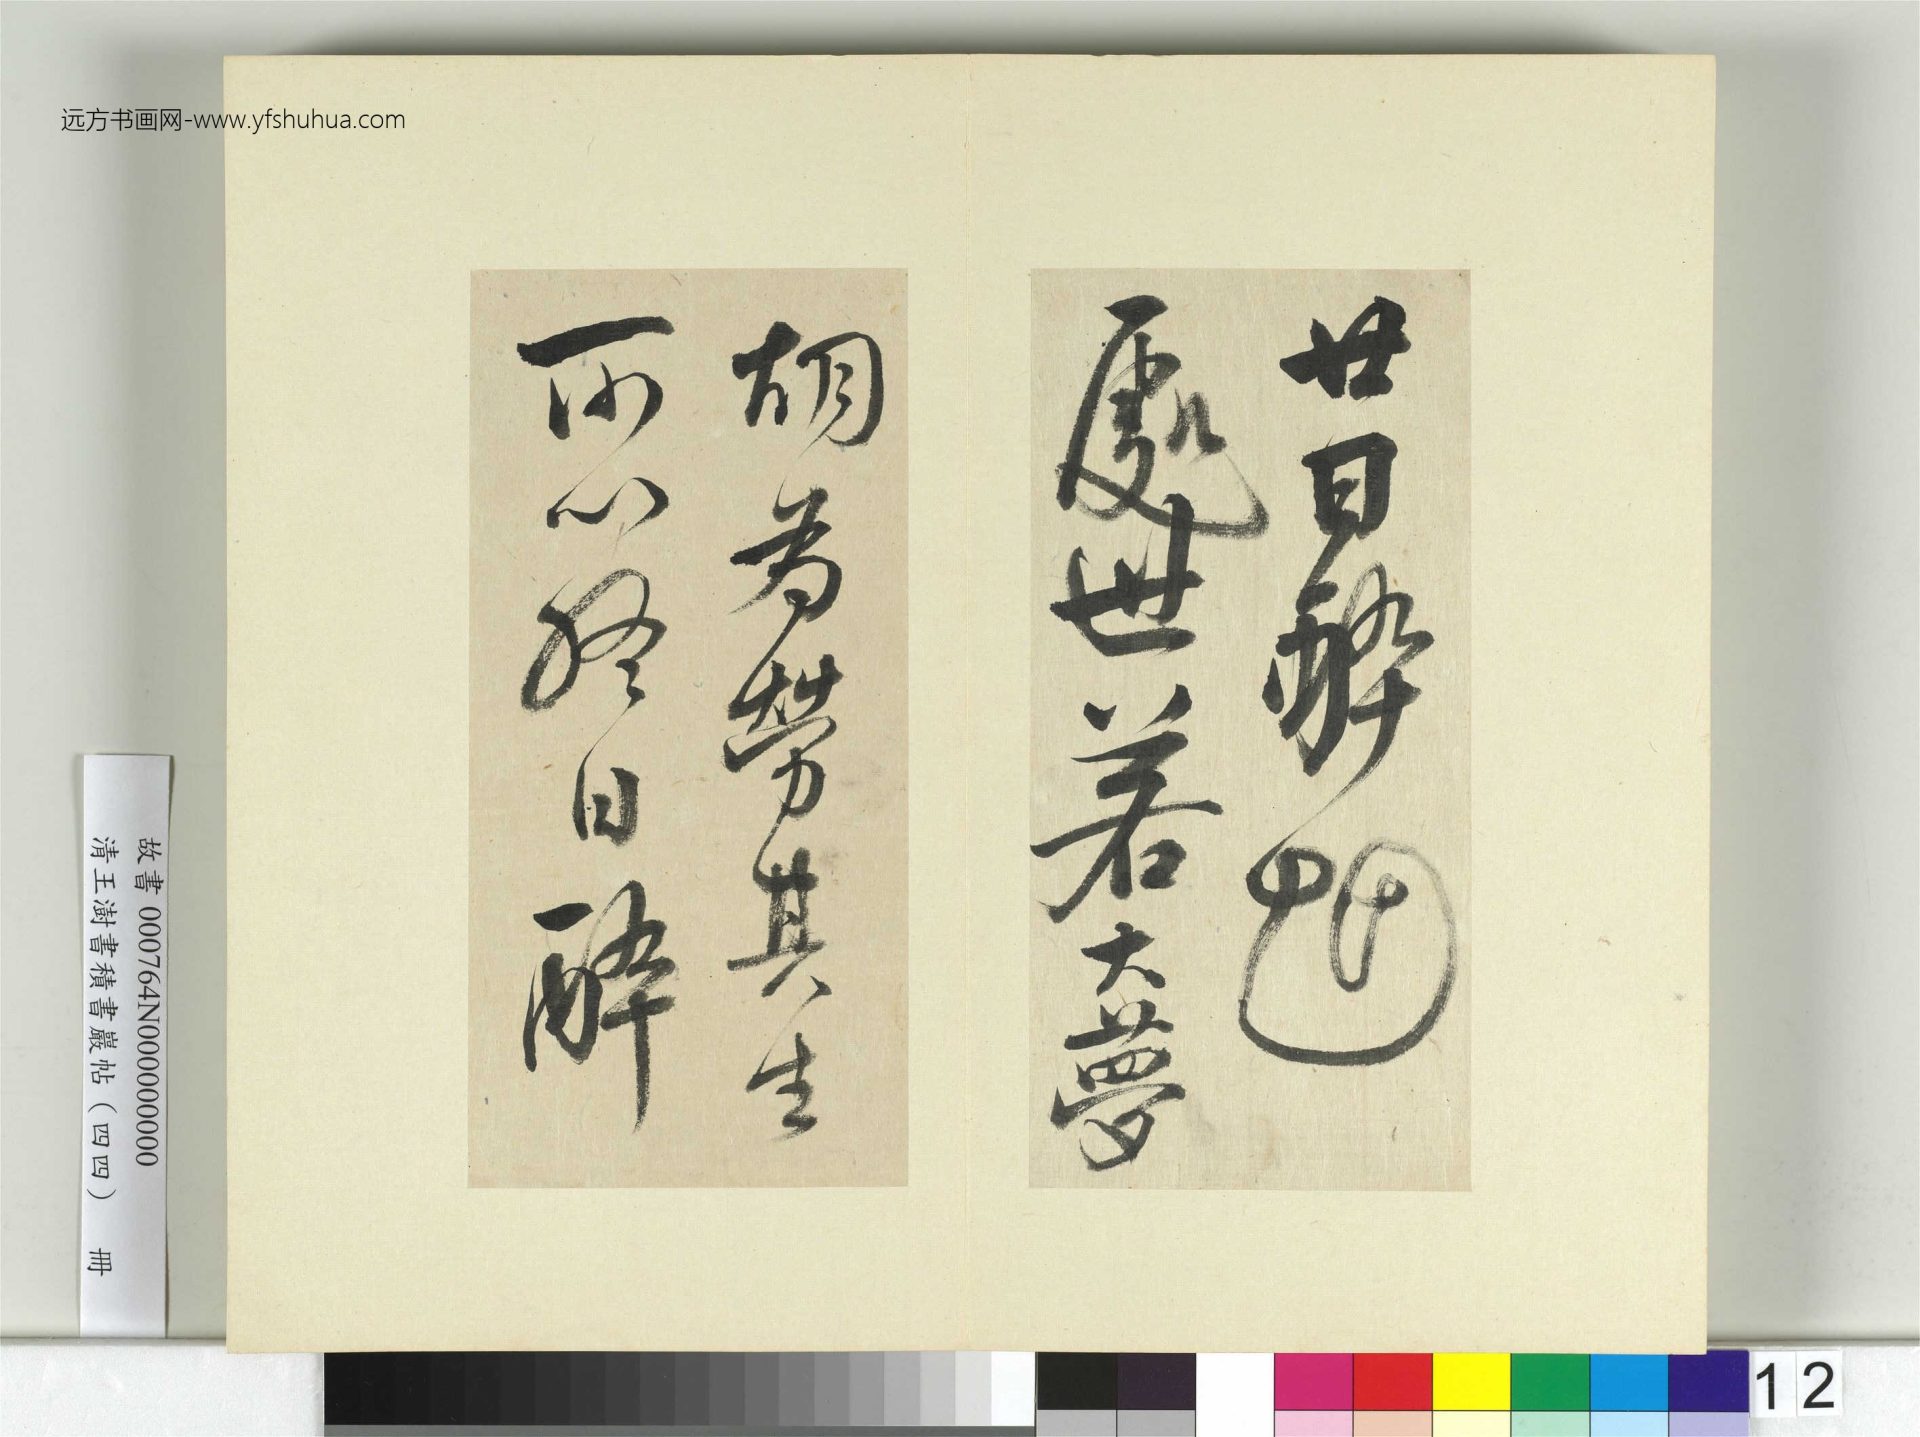 远方书画网-www.yfshuhua.com
廿日醉艸
處世若大夢
胡為勞其生
所以終日醉
故書 000764N000000000
清王澍書積書巖帖（四四）　冊
12